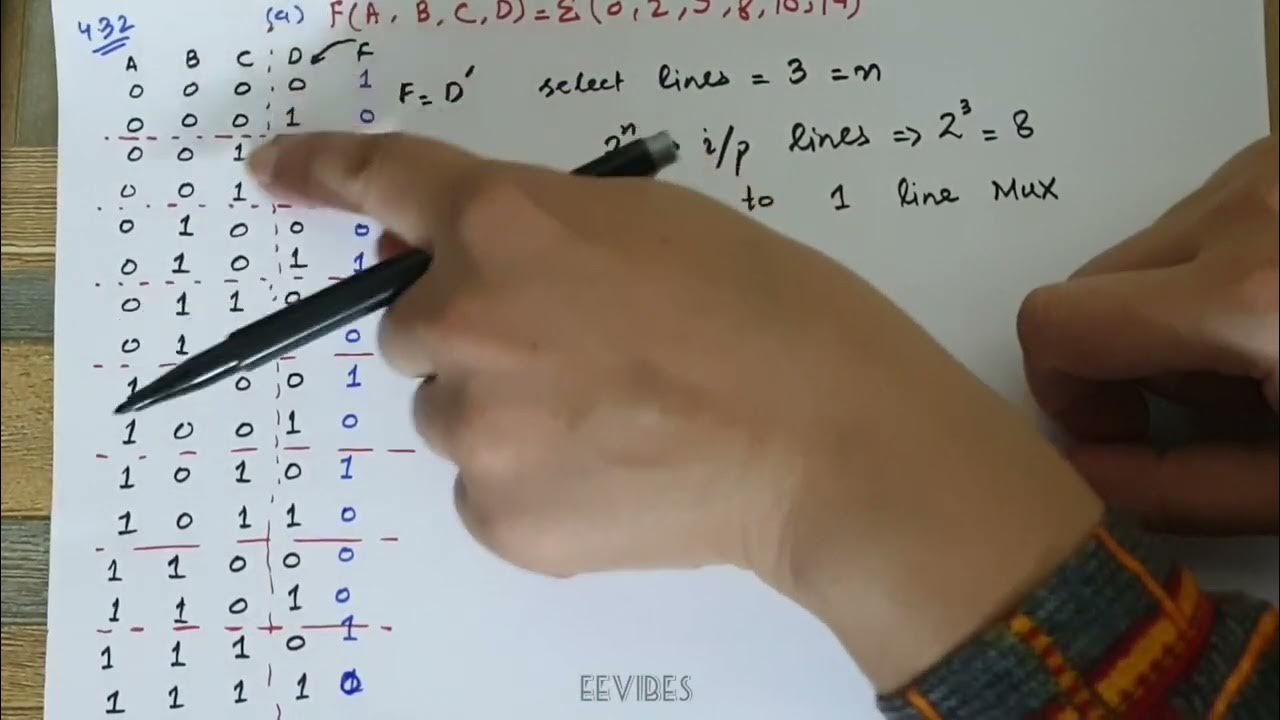 4.32 (a) F(A, B, C, D) = Σ(0, 2, 5, 8, 10, 14)
A B C D F
0 0 0 0 1 F = D' select lines = 3 = n
0 0 0 1 0
2ⁿ i/p lines => 2³ = 8
0 0 1
0 0 1 to 1 line MUX
0 1 0 0 0
0 1 0 1 1
0 1 1 0
0 1 0
1 0 0 1
1 0 0 1 0
1 0 1 0 1
1 0 1 1 0
1 1 0 0 0
1 1 0 1 0
1 1 1 0 1
1 1 1 1 0
EEVIBES